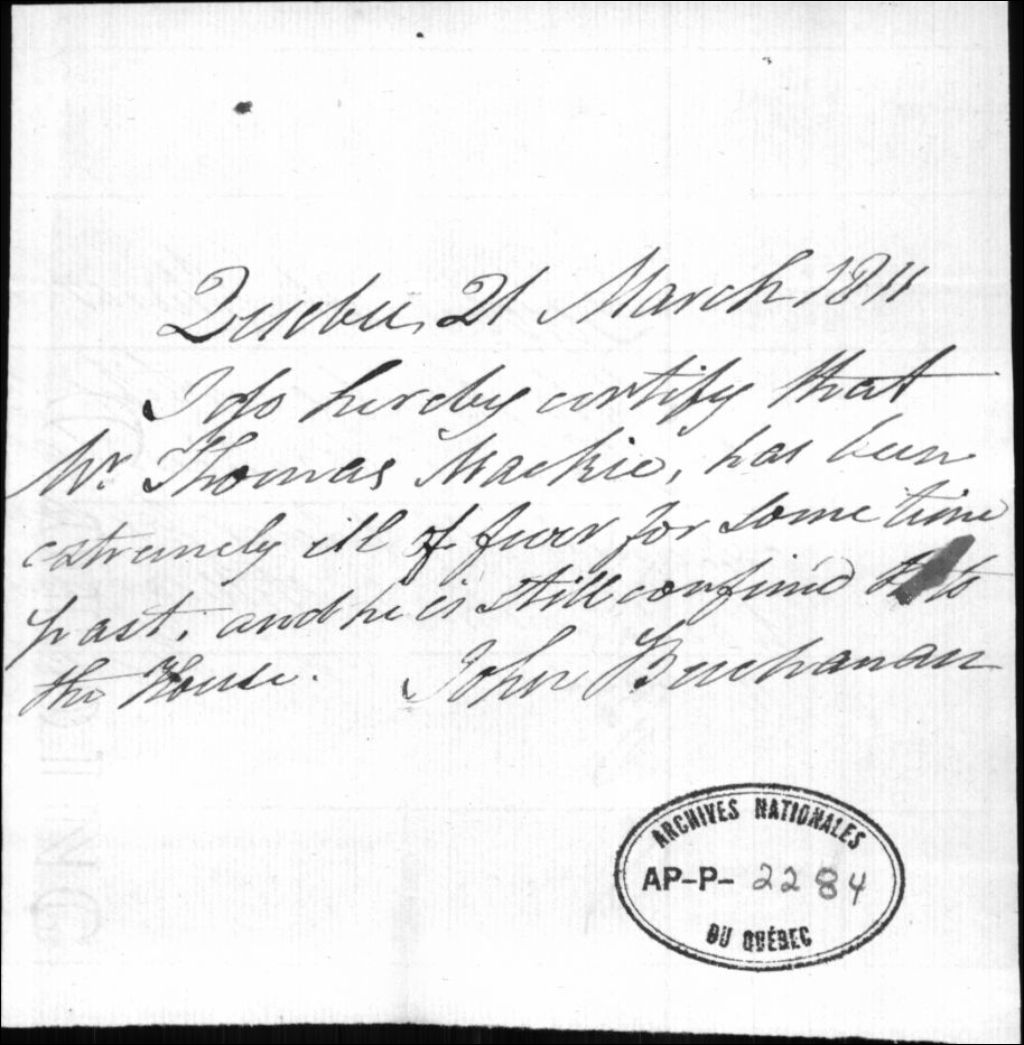 Quebec, 21 March 1811
I do hereby certify that
Mr. Thomas Mackie, has been
extremely ill of fever for some time
past, and he is still confined to
the House. John Buchanan
ARCHIVES NATIONALES
AP-P-2284
DU QUÉBEC